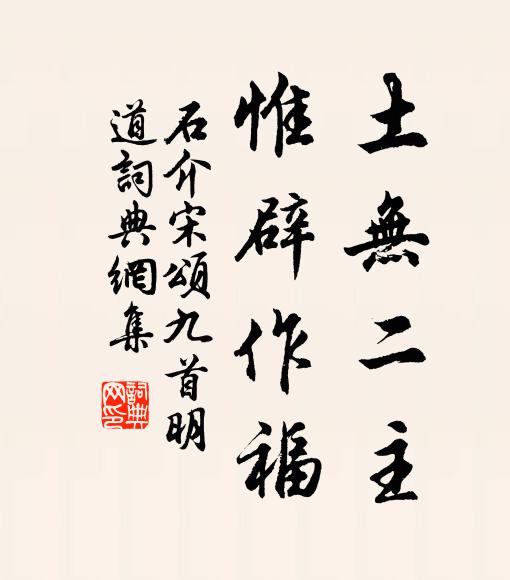 土無二主
惟辟作福
石介宋頌九首明
道詞典網集
詞典
网印